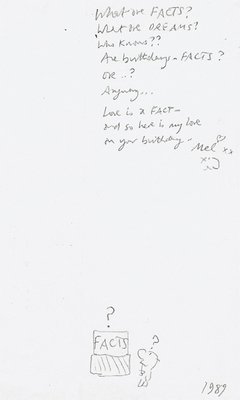 What are FACTS?
What are DREAMS?
Who knows??
Are birthdays - FACTS?
OR ..?
Anyway...
Love is a FACT -
and so here is my love
on your birthday..
Mel xx
?
FACTS
?
1989